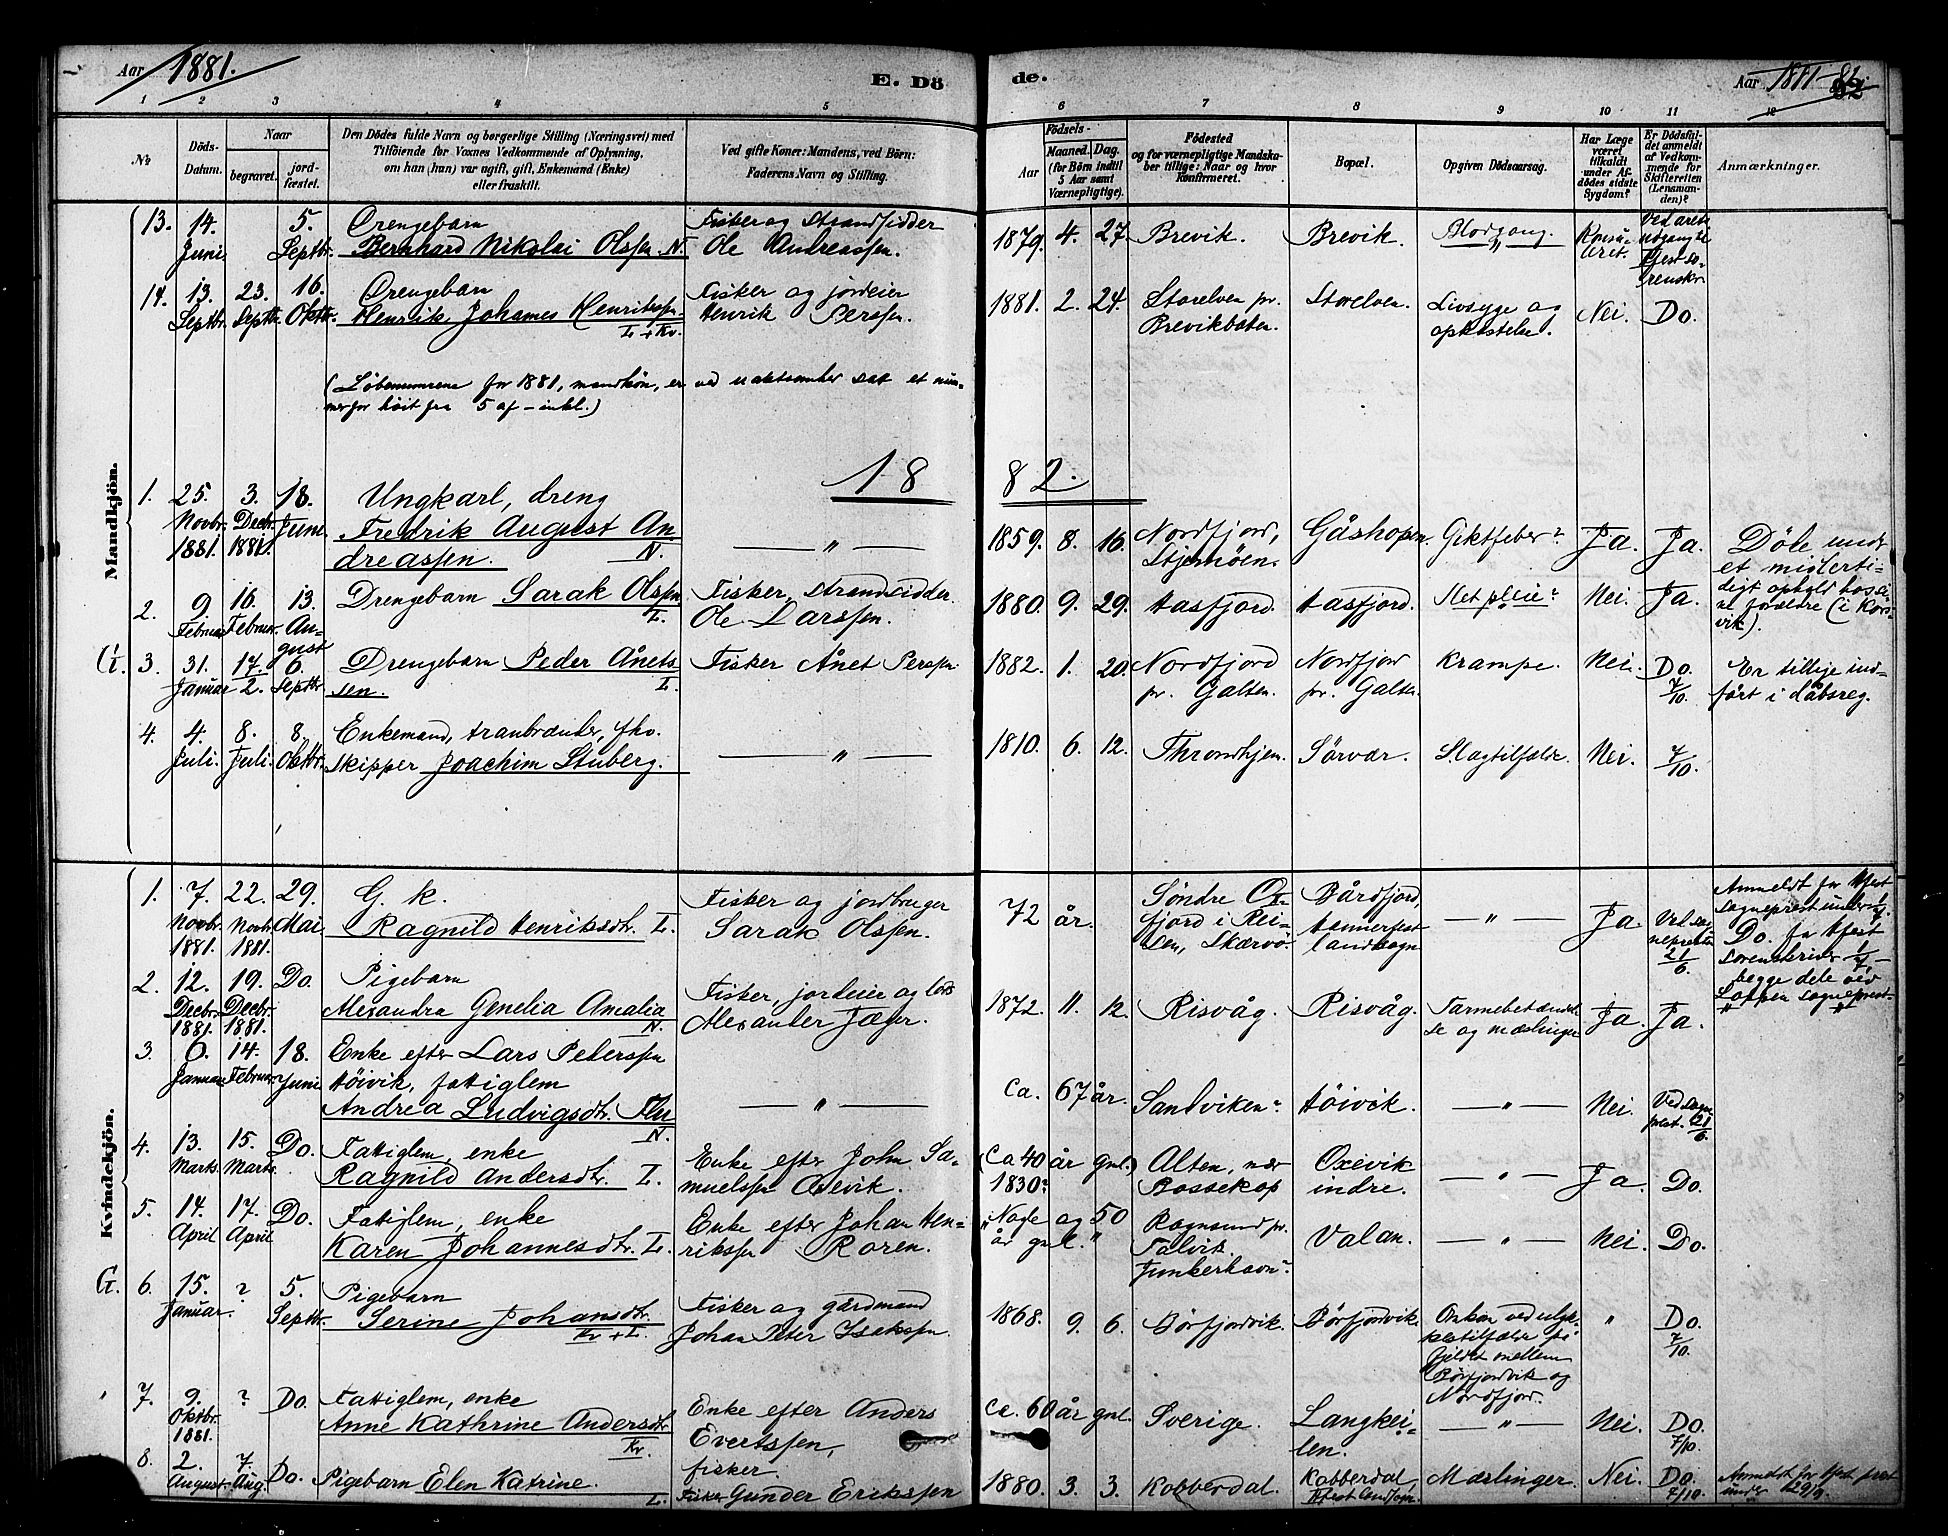 Aar 1881.
E. Döde.
Aar 1881-82.
1 2 3 4 5 6 7 8 9 10 11 12
No
Döds-Datum.
Naar
begravet.
jordfæstet.
Den Dödes fulde Navn og borgerlige Stilling (Næringsvei) med
Tilföiende for Voxnes Vedkommende af Oplysning,
om han (hun) var ugift, gift, Enkemand (Enke)
eller fraskilt.
Ved gifte Koner: Mandens, ved Börn:
Faderens Navn og Stilling.
Födsels-
Aar
Maaned. Dag.
(for Börn indtil
5 Aar samt
Værnepligtige).
Födested
og for værnepligtige Mandska-
ber tillige: Naar og hvor
konfirmeret.
Bopæl.
Opgiven Dödsaarsag.
Har Læge
været
tilkaldt
under Af-
dödes sidste
Sygdom?
Er Dödsfal-
det anmeldt
af Vedkom-
mende for
Skifteretten
(Lensman-
den)?
Anmærkninger.
Mandkjön.
13. 14. Juni 5. Septbr. Drengebarn
Bernhard Nikolai Olssen. N. Fisker og strandsidder
Ole Andreassen. 1879. 4. 27. Brevik. Brevik. Blodgang.
14. 13. Septbr. 23. Septbr. 16. Oktbr. Drengebarn
Henrik Johannes Henrikssen. L + Kv. Fisker og jordeier
Henrik Perssen. 1881. 2. 24. Storelven pr.
Brevikboten. Storelven. Livsyge og
opkastelse. Nei. Do.
(Löbenumrene for 1881, mandkön, er ved uaktsomhet sat et num-
mer for höit fra 5 af - inkl.)
1882.
1. 25. Novbr. 1881. 3. Decbr. 1881. 18. Juni. Ungkarl, dreng
Fredrik August An-
dreassen. N. — " — 1859. 8. 16. Nordfjord,
Stjernöen. Gåshopen. Giktfeber? Ja. Ja. Döde under
et midlerti-
digt ophold hos si-
ne forældre (i Kors-
vik).
2. 9. Februar 16. Februar. 13. August Drengebarn Sarak Olssen
L. Fisker, strandsidder
Ole Larssen. 1880. 9. 29. Aasfjord. Aasfjord. Nei. Ja.
G. 3. 31. Januar 17/2. 6. Septbr. Drengebarn Peder Ånets-
sen. L. Fisker Ånet Perssen 1882. 1. 20. Nordfjord
pr. Galten. Nordfjor
pr. Galten Krampe. Nei. Do. 7/10. Er tillige ind-
fört i dåbsreg.
4. 4. Juli. 8. Juli. 8. Oktbr. Enkemand, tranbrænder, fhv.
skipper Joachim Stuberg. — " — 1810. 6. 12. Throndhjem. Sörvær. Slagtilfælde. Nei. 7/10.
Kvindekjön.
1. 7. Novbr. 1881. 22. Novb. 1881. 29. Mai G. k.
Ragnild Henriksdtr. L. Fisker og jordbruger
Sarak Olssen. 72 år. Söndre Ox-
fjord i Rei-
sen, Skærvö Bårdfjord,
Hammerfest
landsogn — " — Ja. Ved sog-
nepresten
21/6. Anmeldt for Hfest
sogneprest under 1/7.
Do. for Hfest
sorenskriver 1/7 -
begge dele ved
Loppen sogneprest.
2. 12. Decbr. 1881. 19. Decbr. 1881. Do. Pigebarn
Alexandra Genelia Amalia
N. Fisker, jordeier og lods
Alexander Jæger. 1872. 11. 12. Risvåg. Risvåg. Tarmebetændel-
se og mæslinger Ja. Ja.
3. 6. Januar 14. Februar. 18. Juni Enke efter Lars Peterssen
Höivik, fattiglem
Andrea Ludvigsdtr. N. — " — Ca. 67 år. Sandviken? Höivik. — " — Nei. Ved sogne
prest. 21/6.
4. 13. Marts 15. Marts. Do. Fattiglem, enke
Ragnild Andersdtr. L. Enke efter John Sa-
muelssen Oxevik. (Ca 40 år gml.)
1830? Alten, nær
Bossekop Oxevik
indre. — " — Ja. Do.
5. 14. April 17. April Do. Fattiglem, enke
Karen Johannesdtr. L. Enke efter Johan Hen-
rikssen Roren. "Nogle og 50
år gml." Rognsund pr.
Talvik.
Junkerhavn? Valan. — " — Nei. Do.
G. 6. 15. Januar. ? 5. Septbr. Pigebarn
Serine Johansdtr.
Kv + L. Fisker og gårdmand
Johan Peter Isakssen. 1868. 9. 6. Börfjordvik. Börfjordvik. Omkom ved ulyk-
kestilfælde på
fjeldet mellem
Börfjordvik og
Nordfjord. " Do. 7/10.
7. 9. Oktbr. 1881. ? Do. Fattiglem, enke
Anne Kathrine Andersdtr.
Kv Enke efter Anders
Evertssen,
fisker. Ca. 60 år gml. Sverige. Langkei-
len. — " — Nei. Do. 7/10.
8. 2. August. 7. Aug. Do. Pigebarn Elen Katrine.
L. Fisker Gunder Erikssen 1880. 3. 3. Kobberdal. Kobberdal,
Hfest landsogn. Mæslinger. Nei. Do. 7/10. Anmeldt for Hfest prest
under 29/9.